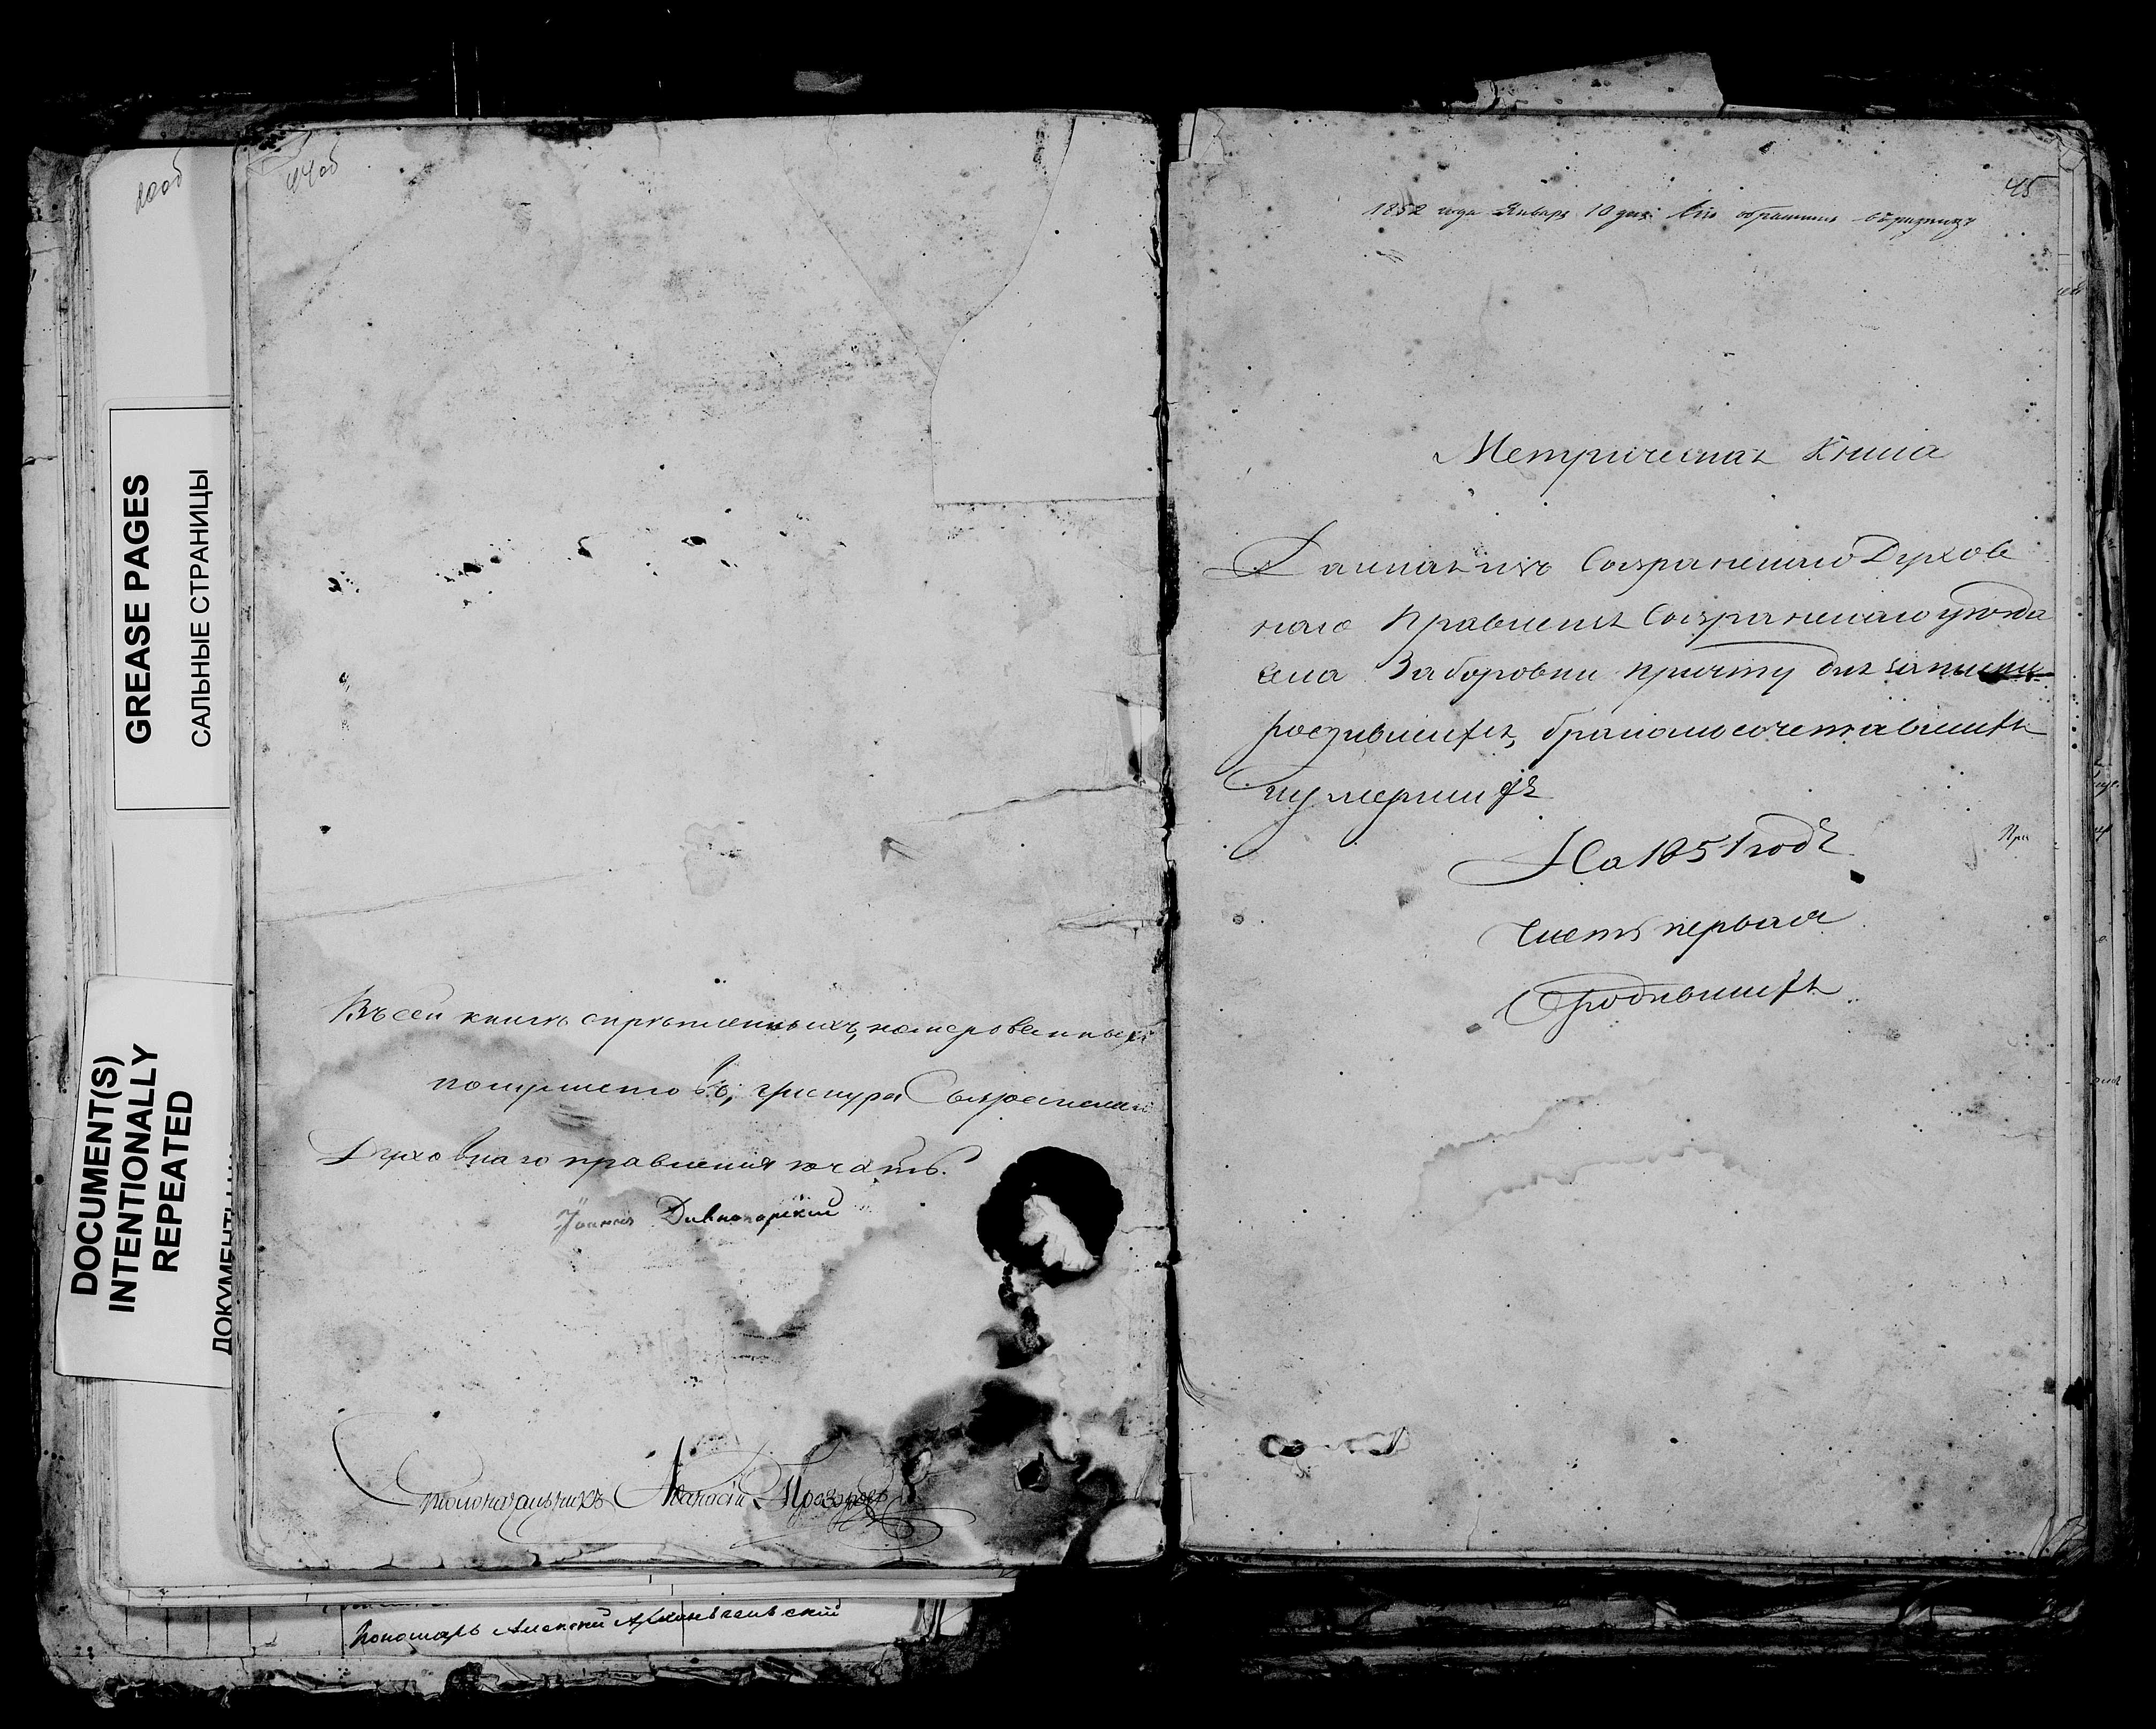 40об
GREASE PAGES
САЛЬНЫЕ СТРАНИЦЫ
DOCUMENT(S)
INTENTIONALLY
REPEATED
44об
Въ сей книгѣ скрѣпленныхъ, номерованныхъ
Духовнаго правленія печать.
Іоаннъ Дивногорскій
Столоначальникъ Аѳанасій
Пономарь Алексей Архангельскій
45
1852 года Января 10 дня
Метрическая Книга
Данная изъ Сызранскаго Духов
наго Правленія Сызранскаго уѣзда
села Заборовки причту для записки
родившихся, бракомъ сочетавшихся
и умершихъ
На 1851 годъ
Часть первая
О родившихся
При